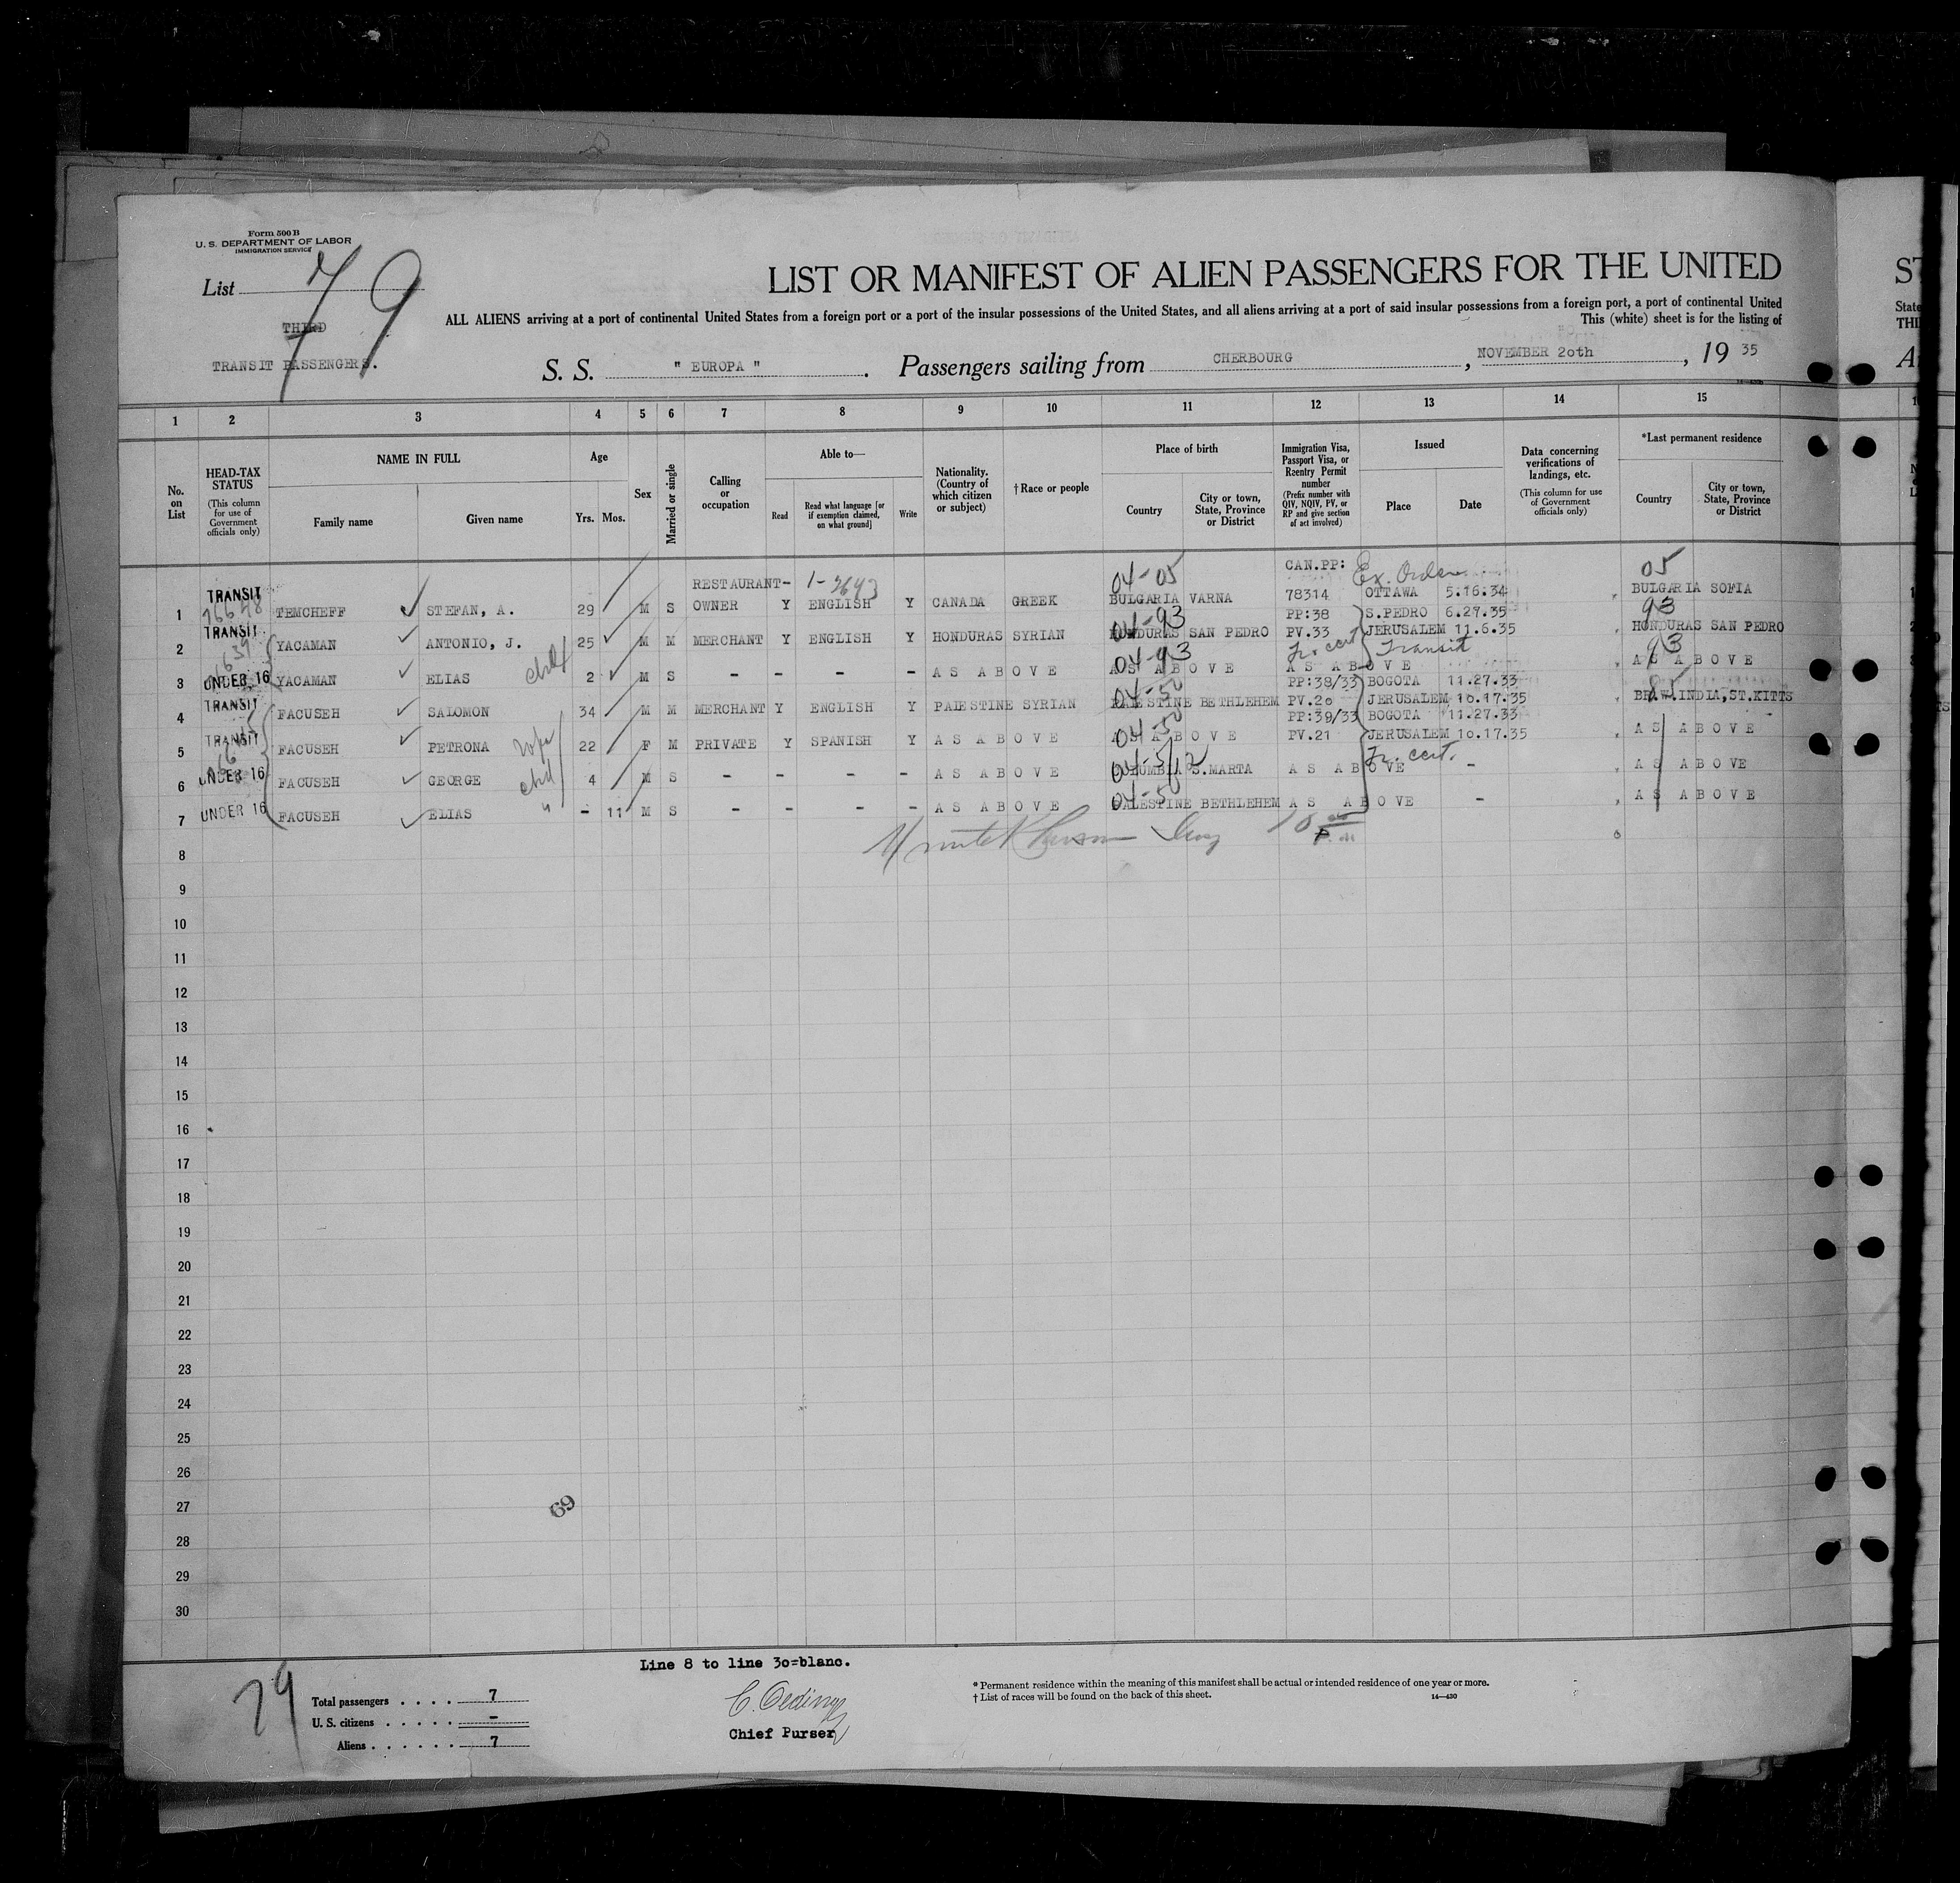 Form 500 B
U. S. DEPARTMENT OF LABOR
IMMIGRATION SERVICE
List 79
THIRD
TRANSIT PASSENGERS.
LIST OR MANIFEST OF ALIEN PASSENGERS FOR THE UNITED
ALL ALIENS arriving at a port of continental United States from a foreign port or a port of the insular possessions of the United States, and all aliens arriving at a port of said insular possessions from a foreign port, a port of continental United
This (white) sheet is for the listing of
S. S. " EUROPA " . Passengers sailing from CHERBOURG , NOVEMBER 2oth , 19 35
1 2 3 4 5 6 7 8 9 10 11 12 13 14 15
No. on List
HEAD-TAX STATUS (This column for use of Government officials only)
NAME IN FULL
Family name Given name
Age
Yrs. Mos.
Sex
Married or single
Calling or occupation
Able to—
Read
Read what language [or if exemption claimed, on what ground]
Write
Nationality. (Country of which citizen or subject)
†Race or people
Place of birth
Country
City or town, State, Province or District
Immigration Visa, Passport Visa, or Reentry Permit number (Prefix number with QIV, NQIV, PV, or RP and give section of act involved)
Issued
Place Date
Data concerning verifications of landings, etc. (This column for use of Government officials only)
*Last permanent residence
Country
City or town, State, Province or District
TRANSIT RESTAURANT- 04-05 CAN.PP: Ex. Order 05
1 TEMCHEFF STEFAN, A. 29 M S OWNER Y ENGLISH Y CANADA GREEK BULGARIA VARNA 78314 OTTAWA 5.16.34 BULGARIA SOFIA
TRANSIT 04-93 PP:38 S.PEDRO 6.27.35 93
2 YACAMAN ANTONIO, J. 25 M M MERCHANT Y ENGLISH Y HONDURAS SYRIAN HONDURAS SAN PEDRO PV.33 JERUSALEM 11.6.35 HONDURAS SAN PEDRO
04-93 Tr. cert Transit 93
3 UNDER 16 YACAMAN ELIAS chd 2 M S - - - - AS ABOVE AS ABOVE AS ABOVE AS ABOVE
TRANSIT 04-50 PP:38/33 BOGOTA 11.27.33
4 FACUSEH SALOMON 34 M M MERCHANT Y ENGLISH Y PALESTINE SYRIAN PALESTINE BETHLEHEM PV.2o JERUSALEM 1o.17.35 BR.W.INDIA,ST.KITTS
TRANSIT 04-50 PP:39/33 BOGOTA 11.27.33
5 FACUSEH PETRONA 22 F M PRIVATE Y SPANISH Y AS ABOVE AS ABOVE PV.21 JERUSALEM 1o.17.35 AS ABOVE
Tr. cert.
6 UNDER 16 FACUSEH GEORGE chd 4 M S - - - - AS ABOVE COLUMBIA S.MARTA AS ABOVE - AS ABOVE
04-50
7 UNDER 16 FACUSEH ELIAS " - 11 M S - - - - AS ABOVE PALESTINE BETHLEHEM AS ABOVE - AS ABOVE
8
9
10
11
12
13
14
15
16
17
18
19
20
21
22
23
24
25
26
27
28
29
30
69
Line 8 to line 3o=blanc.
79
Total passengers . . . . 7
U. S. citizens . . . . . -
Aliens . . . . . . 7
C. Oedings
Chief Purser
* Permanent residence within the meaning of this manifest shall be actual or intended residence of one year or more.
† List of races will be found on the back of this sheet.
14—430